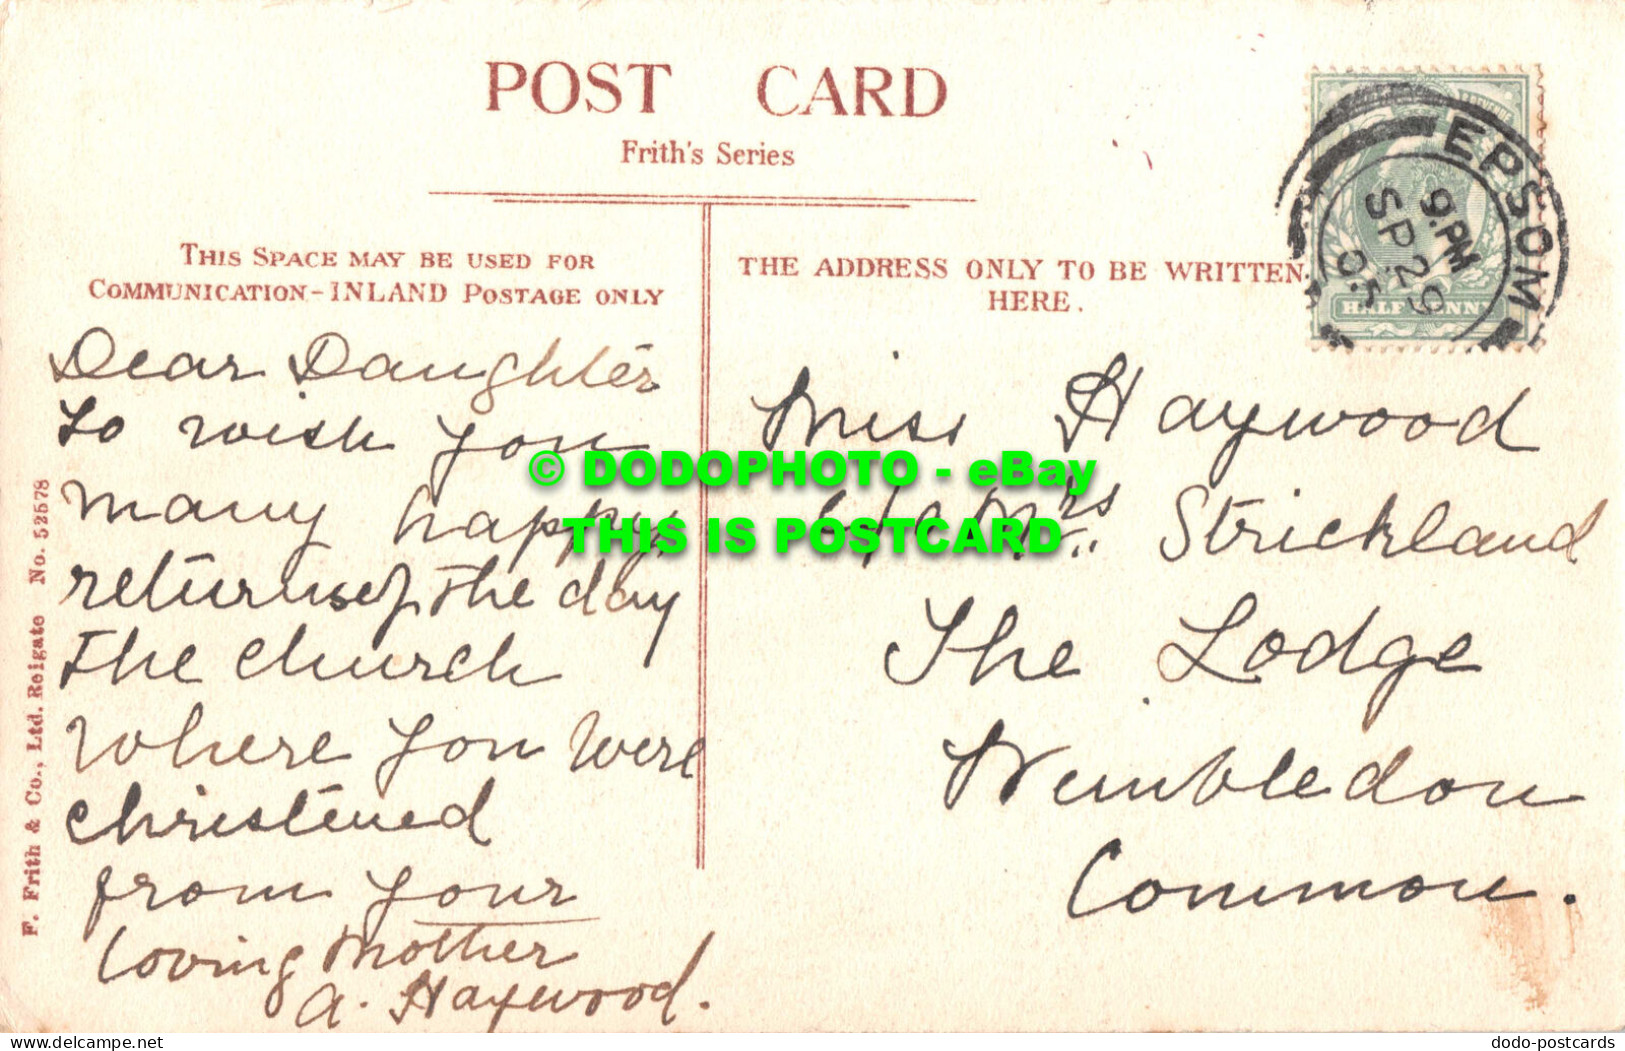 POST CARD
Frith's Series
THIS SPACE MAY BE USED FOR
COMMUNICATION-INLAND POSTAGE ONLY
THE ADDRESS ONLY TO BE WRITTEN
HERE.
EPSOM
9.PM
SP 29
05
HALF PENNY
Dear Daughter
to wish you
many happy
returns of the day
The church
where you were
christened
from your
loving Mother
A. Haywood.
Miss Haywood
c/o Mrs Strickland
The Lodge
Wimbledon
Common.
F. Frith & Co., Ltd. Reigate No. 52578
© DODOPHOTO - eBay
THIS IS POSTCARD
ebay.com/str/dodophoto
dodo-postcards